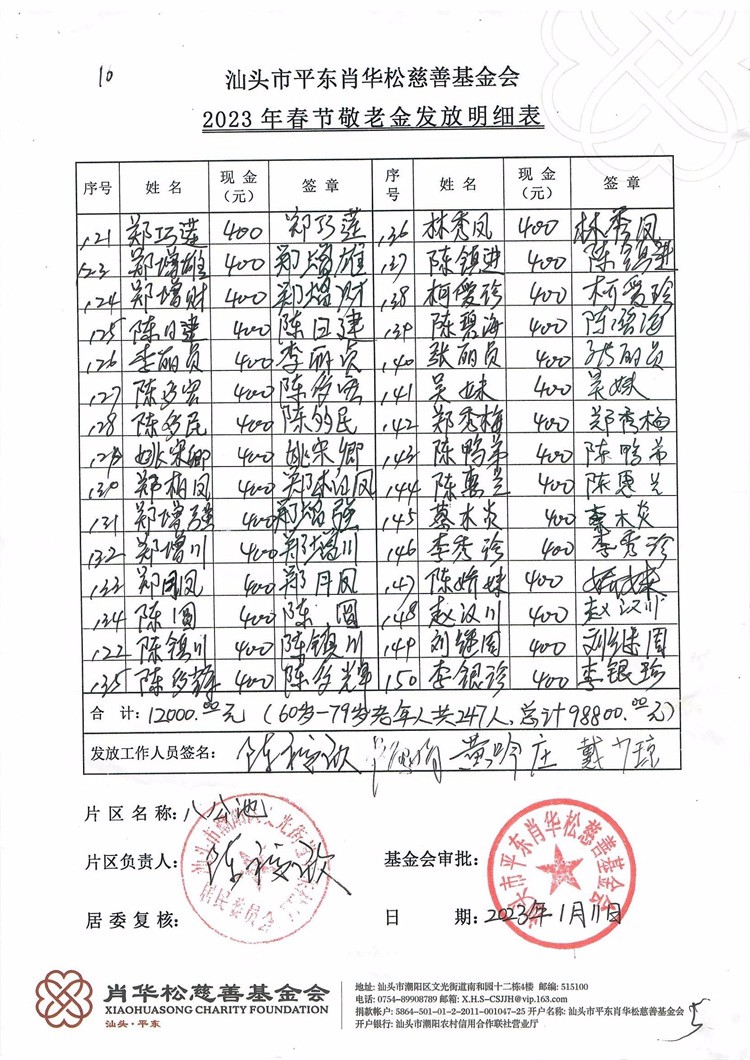 10
汕头市平东肖华松慈善基金会
2023年春节敬老金发放明细表
序号 姓名 现金(元) 签章 序号 姓名 现金(元) 签章
121 郑巧莲 400 郑巧莲 136 林秀凤 400 林秀凤
123 郑增雄 400 郑增雄 137 陈镇进 400 陈镇进
124 郑增财 400 郑增财 138 柯爱珍 400 柯爱珍
125 陈日建 400 陈日建 139 陈碧海 400 陈碧海
126 李丽贞 400 李丽贞 140 张丽贞 400 张丽贞
127 陈多宏 400 陈多宏 141 吴妹 400 吴妹
128 陈多民 400 陈多民 142 郑秀梅 400 郑秀梅
129 姚宋卿 400 姚宋卿 143 陈鸭弟 400 陈鸭弟
130 400 144 陈惠兰 400 陈惠兰
131 郑增强 400 郑增强 145 蔡木炎 400 蔡木炎
132 郑增川 400 郑增川 146 李秀珍 400 李秀珍
133 郑月凤 400 郑月凤 147 陈娇妹 400
134 陈圆 400 陈圆 148 赵汉川 400 赵汉川
122 陈镇川 400 陈镇川 149 刘继周 400 刘继周
135 400 150 李银珍 400 李银珍
合计:12000.00元(60岁-79岁老年人共247人,总计98800.00元)
发放工作人员签名: 黄吟庄
片区名称:八公池
片区负责人:
基金会审批:
居委复核:
日期:2023年1月11日
居民委员会
汕头市平东肖华松慈善基金会
肖华松慈善基金会
XIAOHUASONG CHARITY FOUNDATION
汕头·平东
地址: 汕头市潮阳区文光街道南和园十二栋4楼 邮编: 515100
电话: 0754-89908789 邮箱: X.H.S-CSJJH@vip.163.com
捐款帐户: 5864-501-01-2-2011-001047-25 开户名称: 汕头市平东肖华松慈善基金会
开户银行: 汕头市潮阳农村信用合作联社营业厅
5